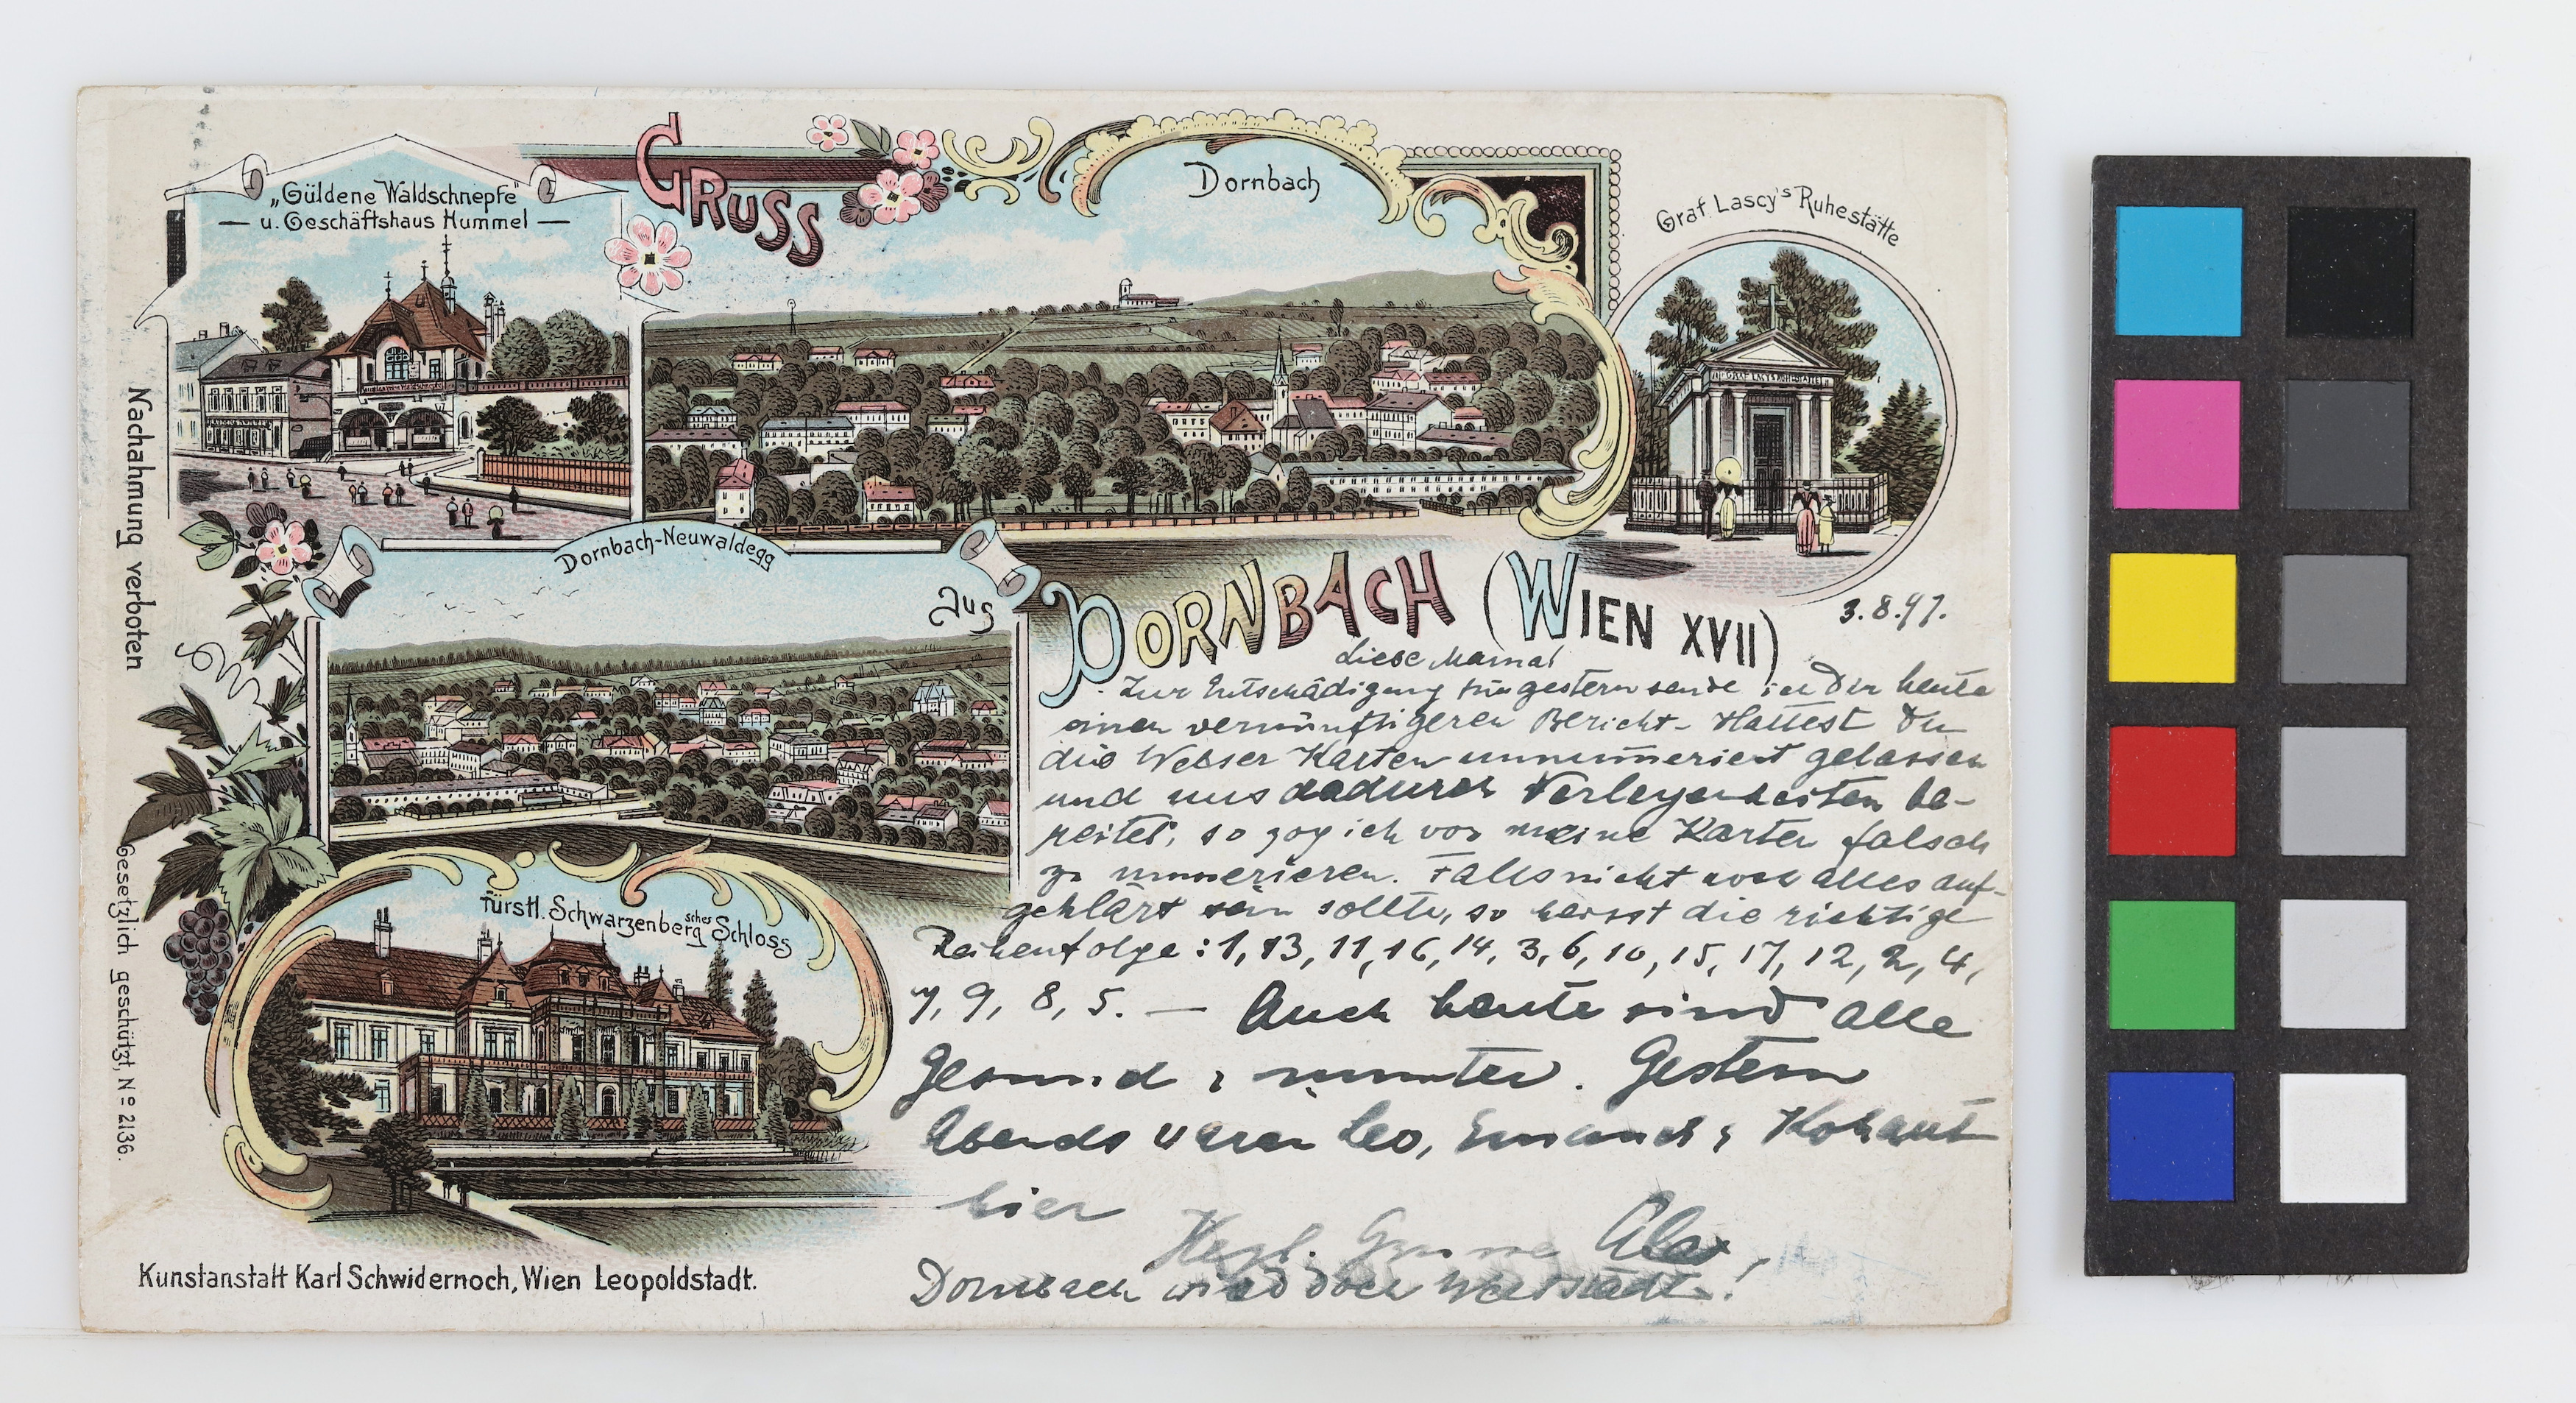 „Güldene Waldschnepfe"
— u. Geschäftshaus Hummel —
GRUSS
Dornbach
Graf Lascy's Ruhestätte
GRAF LASCY'S RUHESTÄTTE
Dornbach-Neuwaldegg
aus
DORNBACH (WIEN XVII)
3.8.97.
Liebe Mama!
Zur Entschädigung für gestern sende ich Dir heute
einen vernünftigeren Bericht - Hattest Du
die Webser Karten unnumeriert gelassen
und uns dadurch Verlegenheiten be-
reitet, so zog ich vor meine Karten falsch
zu numerieren. Falls nicht alles auf-
geklärt sein sollte, so heisst die richtige
Reihenfolge: 1, 13, 11, 16, 14, 3, 6, 10, 15, 17, 12, 2, 4,
7, 9, 8, 5. — Auch heute sind alle
gesund & munter. Gestern
Abends waren Leo, & Kohaut
hier
Herzl. Grüsse
Dornbach wird doch !
Fürstl. Schwarzenberg'sches Schloss
Nachahmung verboten
Gesetzlich geschützt, No 2136.
Kunstanstalt Karl Schwidernoch, Wien Leopoldstadt.